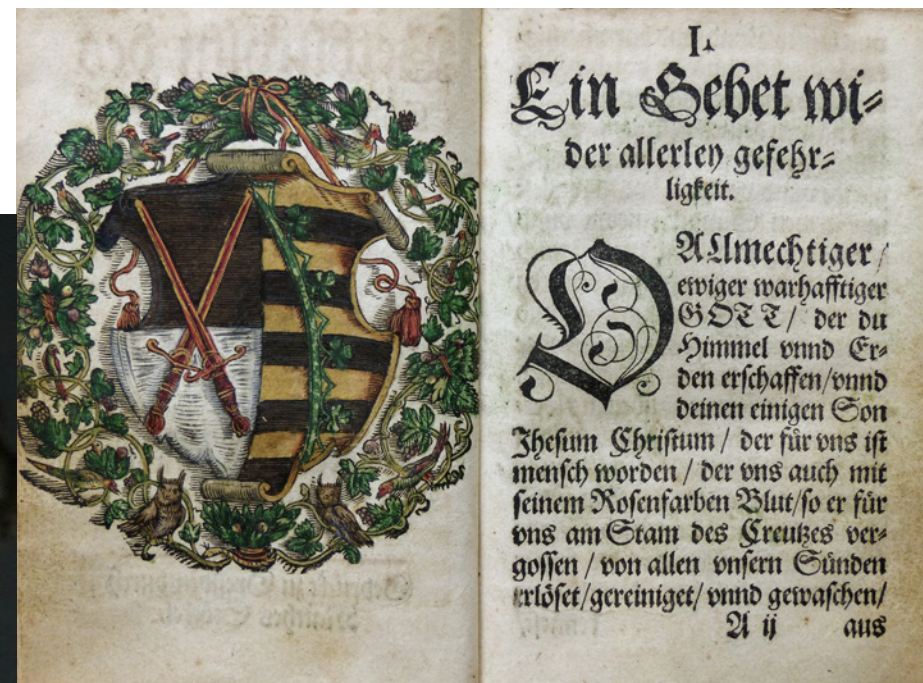 I.
Ein Gebet wi⸗
der allerley gefehr⸗
ligkeit.
DALlmechtiger /
ewiger warhafftiger
GOTT / der du
Himmel vnnd Er⸗
den erschaffen/vnnd
deinen einigen Son
Jhesum Christum / der für vns ist
mensch worden / der vns auch mit
seinem Rosenfarben Blut/so er für
vns am Stam des Creutzes ver⸗
gossen / von allen vnsern Sünden
erlöset/gereiniget/ vnnd gewaschen/
A ij aus